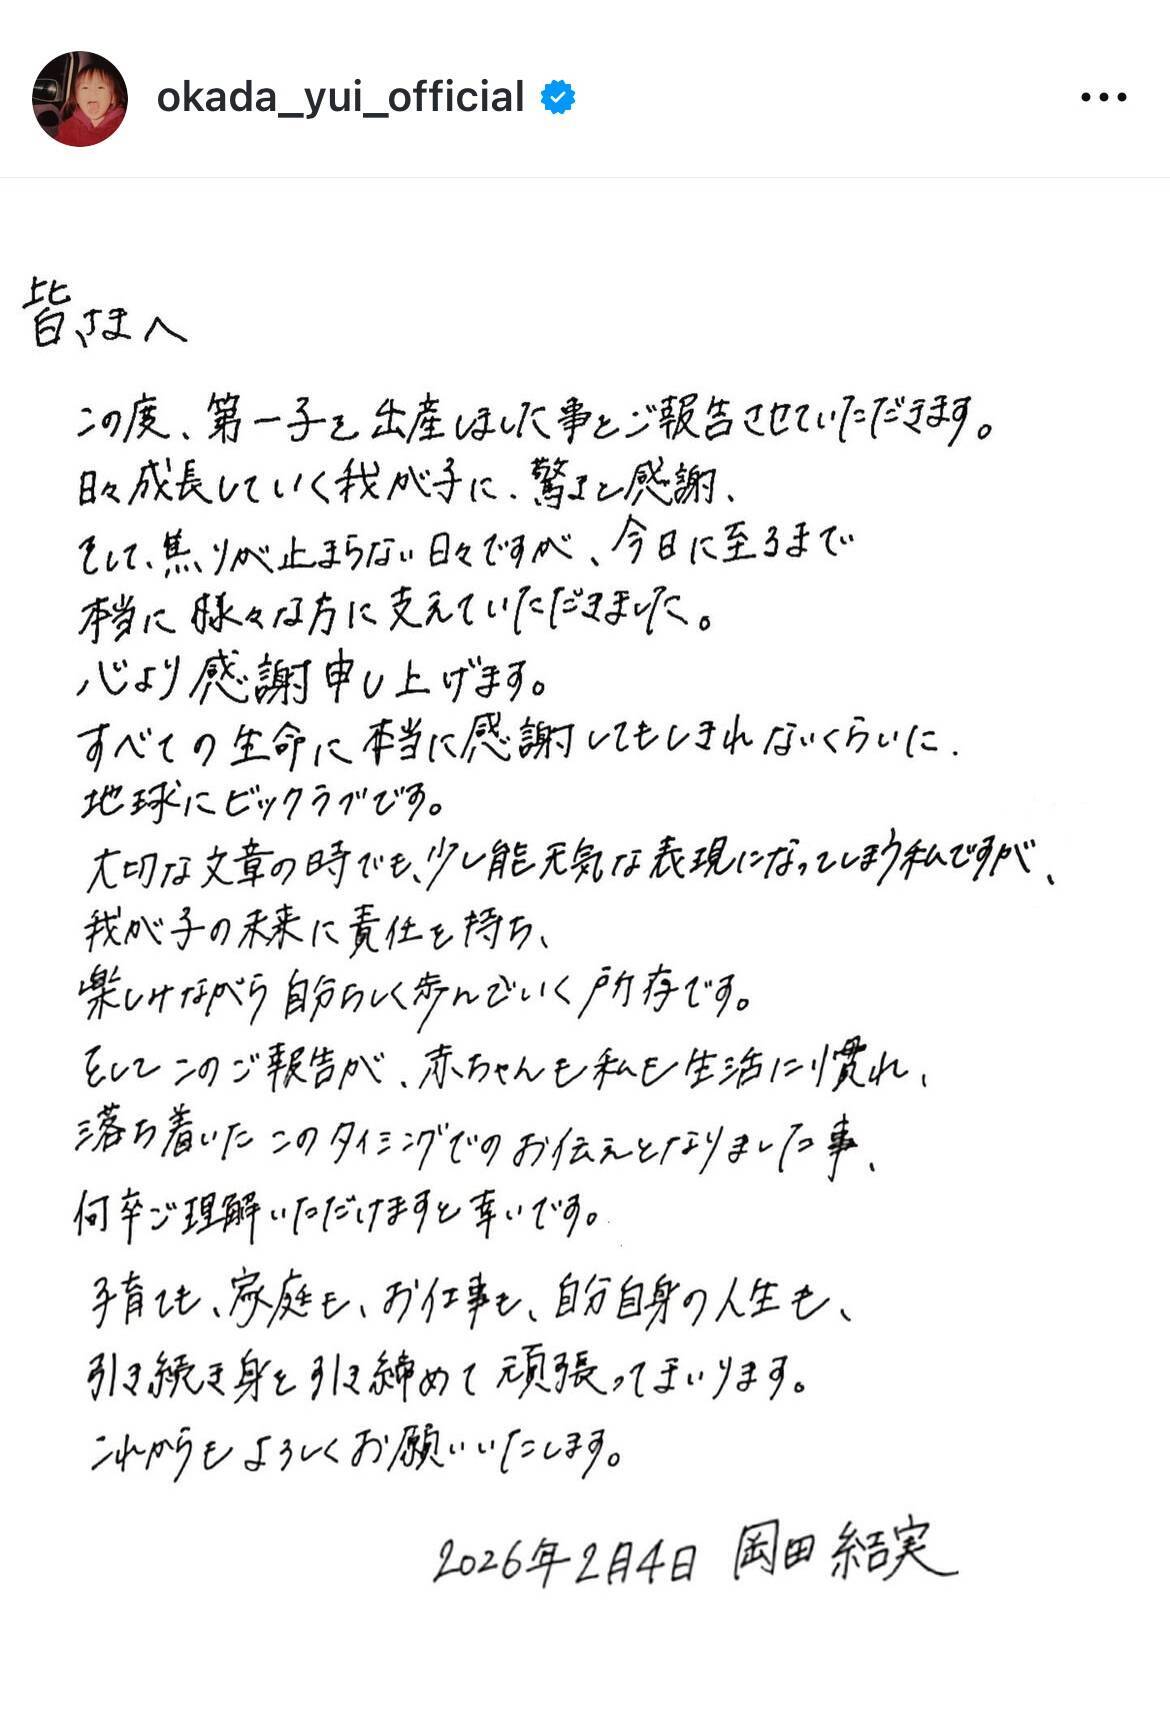 okada_yui_official
皆さまへ
この度、第一子を出産しました事をご報告させていただきます。
日々成長していく我が子に、驚きと感謝、
そして、焦りが止まらない日々ですが、今日に至るまで
本当に様々な方に支えていただきました。
心より感謝申し上げます。
すべての生命に本当に感謝してもしきれないくらいに、
地球にビックラブです。
大切な文章の時でも、少し能天気な表現になってしまう私ですが、
我が子の未来に責任を持ち、
楽しみながら自分らしく歩んでいく所存です。
そしてこのご報告が、赤ちゃんも私も生活に慣れ、
落ち着いたこのタイミングでのお伝えとなりました事、
何卒ご理解いただけますと幸いです。
子育ても、家庭も、お仕事も、自分自身の人生も、
引き続き身を引き締めて頑張ってまいります。
これからもよろしくお願いいたします。
2026年2月4日 岡田結実